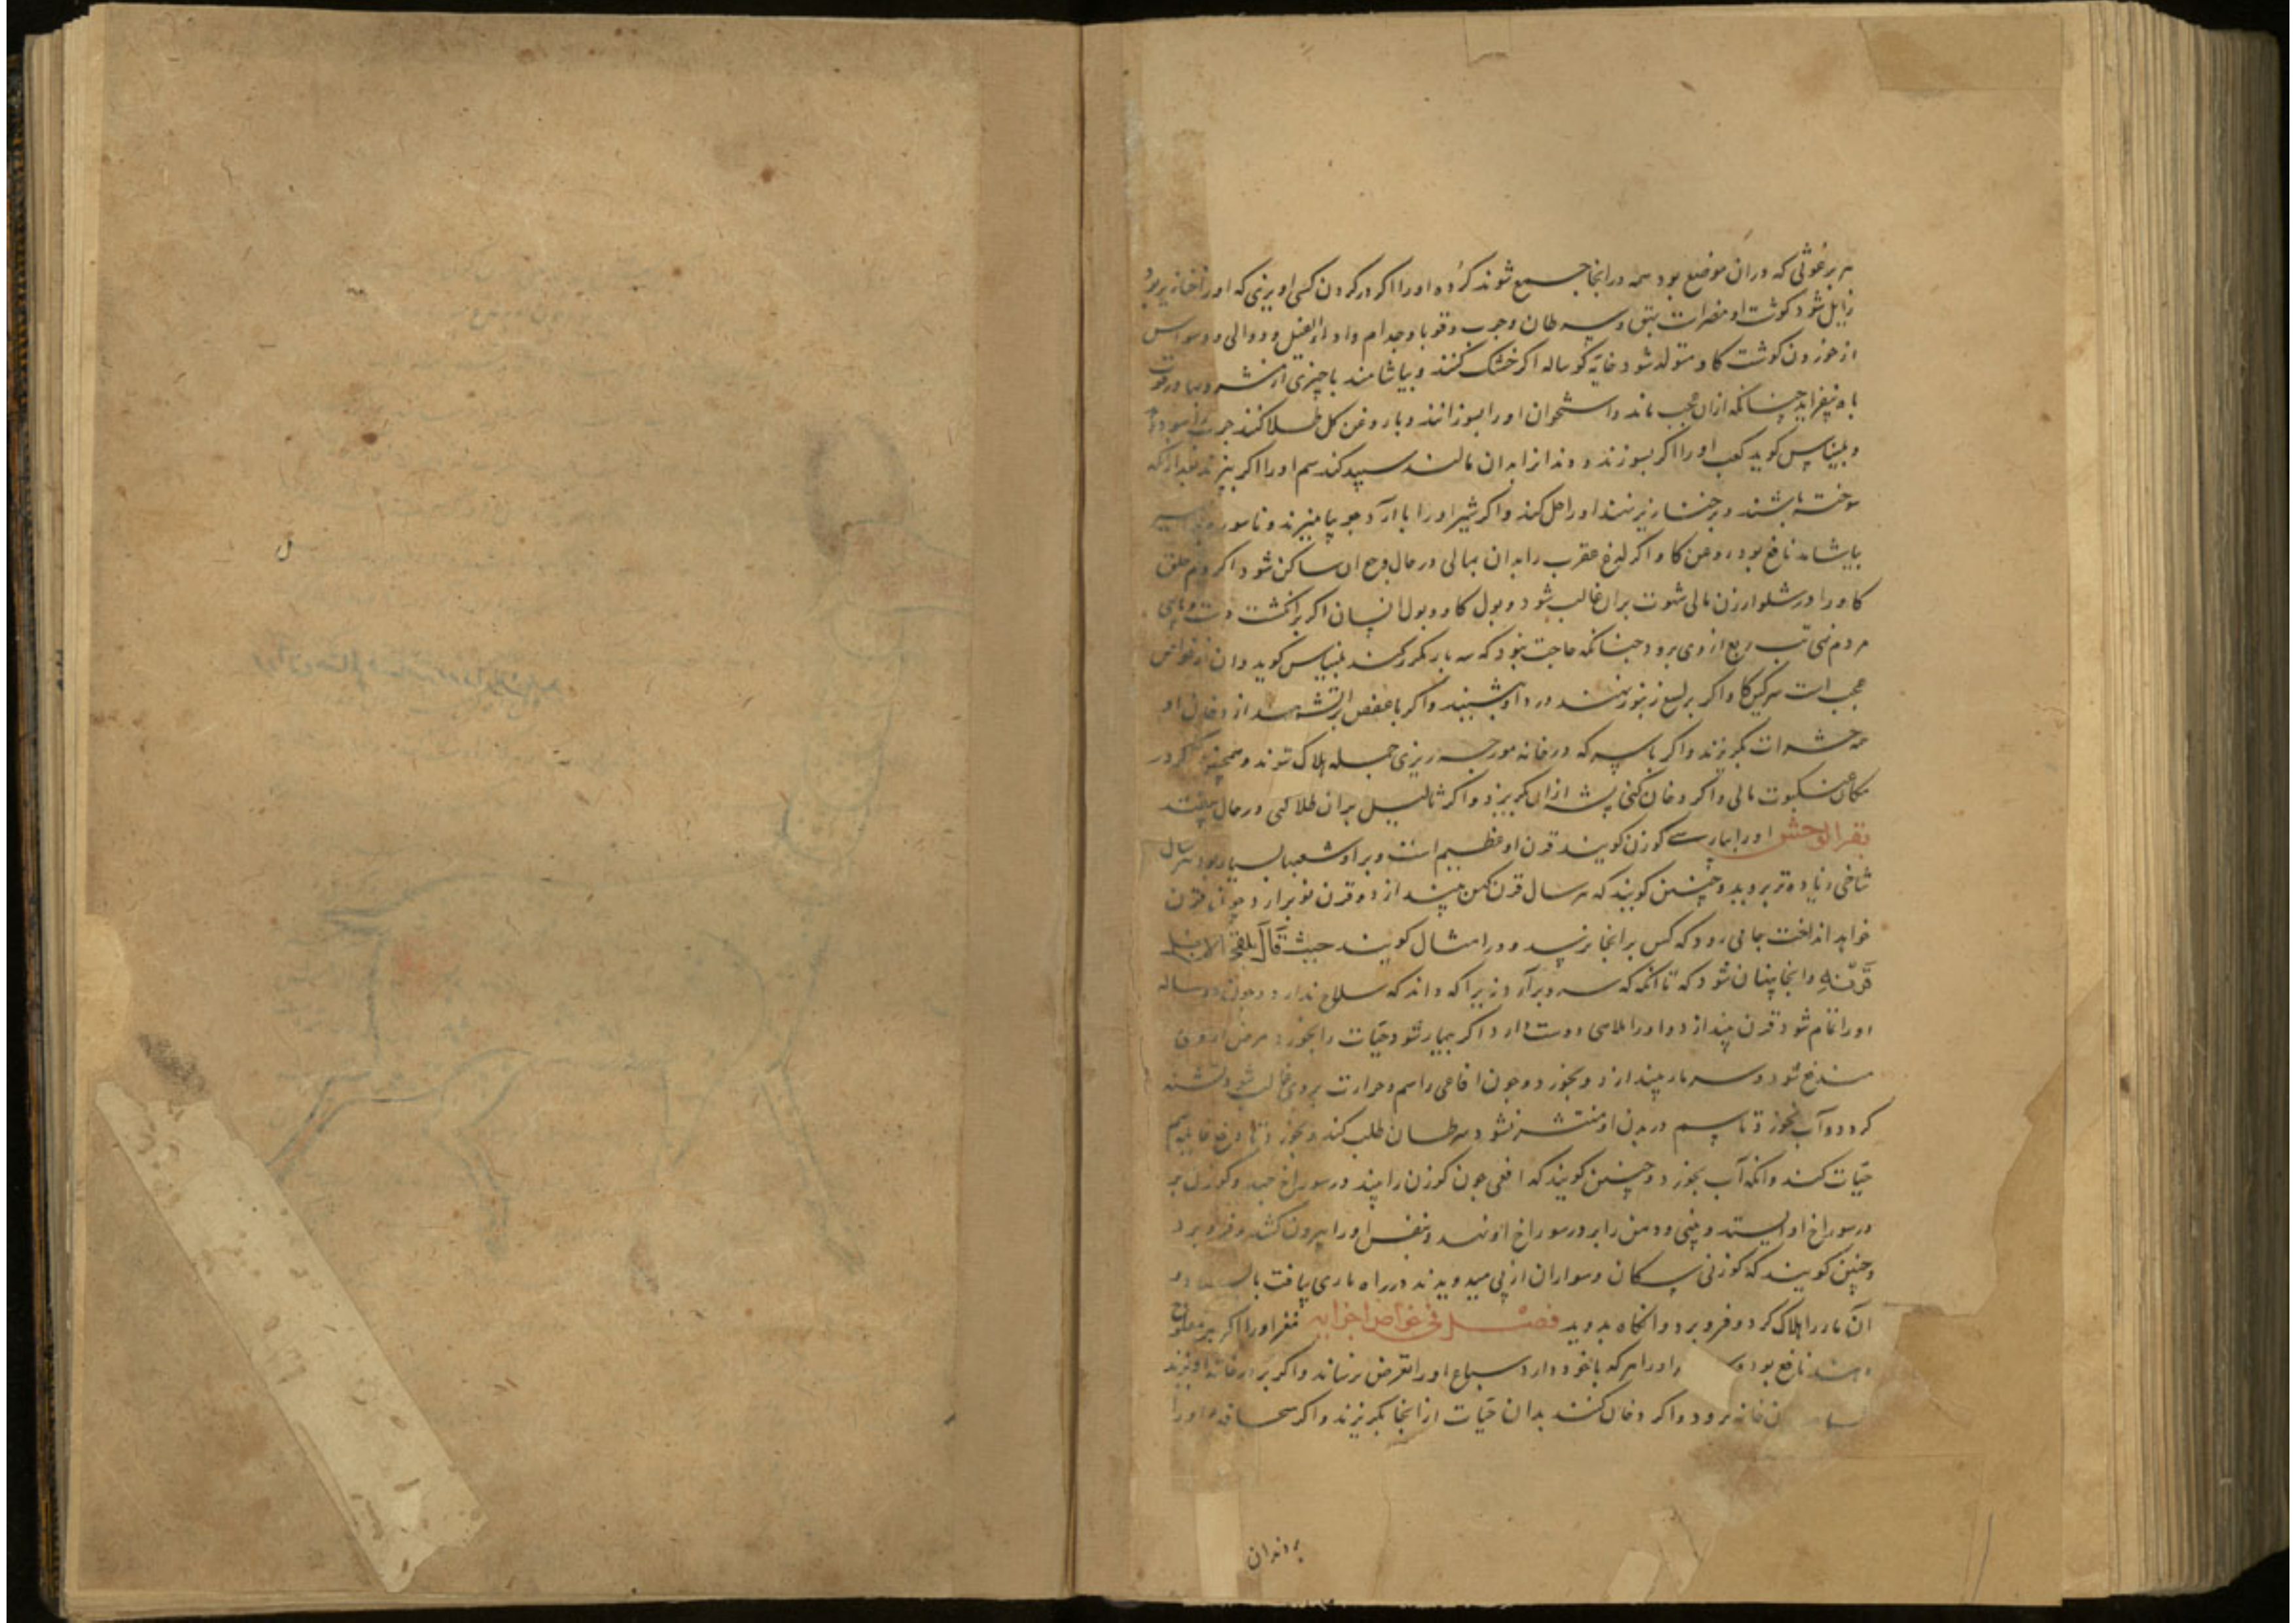 هر برغوثی که دران موضع بود همه درانجا جمع شوند کرده اورا اکر در کردن کسی اویزی که اورا خنازیر بود
زایل شود کوشت او مضرات بهق و سرطان و جرب و قوبا و جذام و داء الفیل و دوالی و وسواس
از خوردن کوشت کاو متولد شود خایه کوساله اکر خشک کنند و بیاشامند با چیزی از مشروبها در قوت
باه بیفزاید چنانکه ازان عجب ماند و استخوان اورا بسوزانند و با روغن کل طلا کنند جرب را سود
و بلیناس کوید کعب اورا اکر بسوزند و دندانرا بدان مالند سپید کند سم اورا اکر بپزند بعد ازانکه
سوخته باشند و بر خنازیر نهند اورا حل کند و اکر شیر اورا با آرد جو بیامیزند و ناسور
بیاشامد نافع بود روغن کاو اکر لدغ عقرب را بدان بمالی در حال وجع ان ساکن شود اکر دم حلق
کاو را در شلوار زن مالی شهوت بران غالب شود و بول کاو و بول انسان اکر بر انکشت دست و پای
مردم نهی تب ربع از وی برود چنانکه حاجت نبود که سه بار مکرر کنند بلیناس کوید و ان از خواص
عجب است سرکین کاو اکر بر لسع زنبور نهند درد او بنشیند و اکر با عفص بر اتش نهند از دخان او
همه حشرات بکریزند و اکر با سرکه در خانه مورچه ریزی جمله هلاک شوند و همچنین اکر در
مکان عنکبوت مالی و اکر دخان کنی پشه ازان بکریزد و اکر ثالیل بران طلا کنی در حال بیفتد
بقر الوحش اورا بپارسی کوزن کویند قرن او عظیم است و براو شعبها بسیار بود هر سال
شاخی زیاده تر بروید و چنین کویند که هر سال قرن کهن بیندازد و قرن نو برارد و چون قرن
خواهد انداخت بجائی رود که کس برانجا نرسد و در امثال کویند حیث قال یلقی الایل
قرنه وانجا پنهان شود که تا انکه که سرو برآرد زیرا که داند که سلاح ندارد و چون دو ساله
اورا تمام شود قرن بیندازد و اورا ملاهی دوست دارد اکر بیمار شود حیات را بخورد مرض ازوی
مندفع شود و سر مار بیندازد و بخورد و چون افاعی را سم و حرارت بر وی غالب شود و تشنه
کردد و آب نخورد تا سم در بدن او منتشر نشود سرطان طلب کند و بخورد تا دفع غایله سم
حیات کند وانکه آب بخورد و چنین کویند که افعی چون کوزن را بیند در سوراخ جهد و کوزن بر
در سوراخ او بایستد و بینی و دهن را بر در سوراخ او نهد و بنفس اورا بیرون کشد و فرو برد
و چنین کویند که کوزنی سکان و سواران از پی میدویدند در راه ماری یافت
آن مار را هلاک کرد و فرو برد و انکاه بدوید فصل فی خواص اجزایه مغز اورا اکر بر مفلوج
نهند نافع بود اورا هر که با خود دارد سباع اورا تعرض نرساند و اکر بر در خانه اویزند
خانه نرود و اکر دخان کنند بدان حیات ازانجا بکریزند و اکر سحاقه اورا
بر دندان
ل